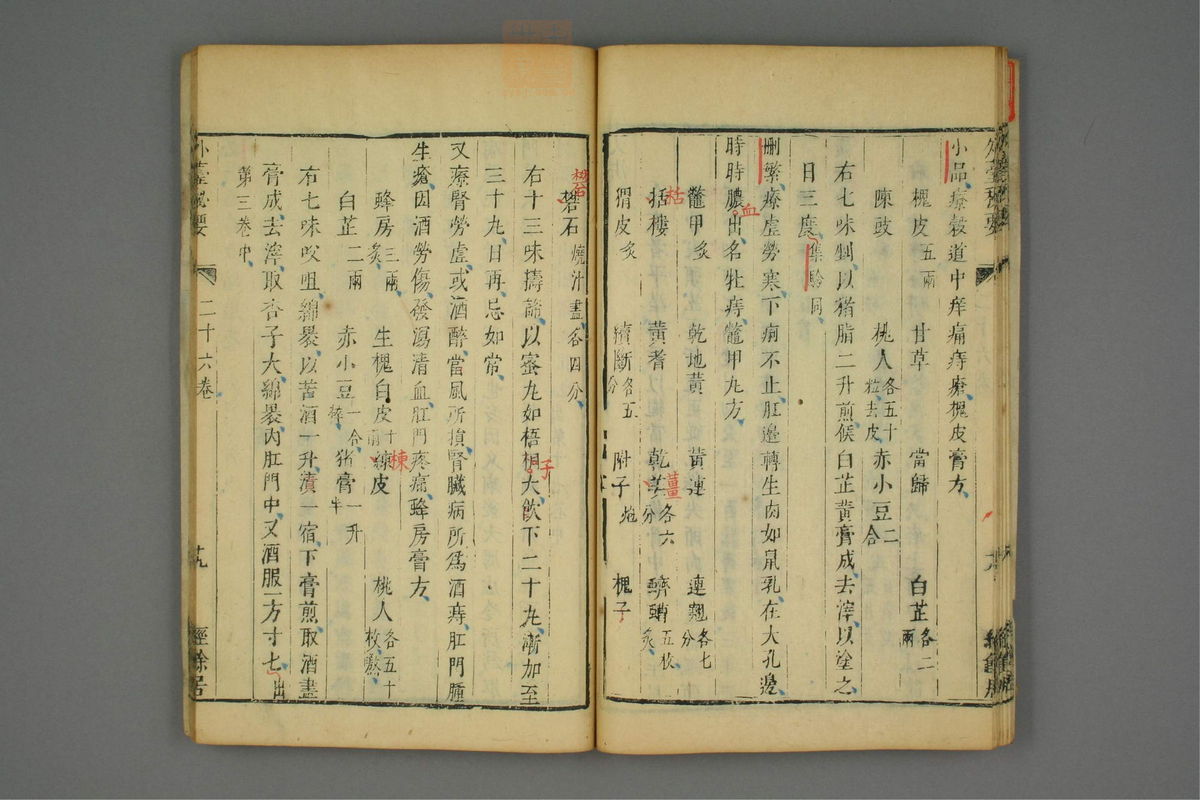 小品療穀道中痒痛痔瘡槐皮膏方
槐皮五兩 甘草 當歸 白芷各二兩
陳豉 桃人各五十粒去皮 赤小豆二合
右七味剉以猪脂二升煎候白芷黃膏成去滓以塗之
日三度集驗同
刪繁療虛勞寒下痢不止肛邊轉生肉如鼠乳在大孔邊
時時膿血出名牝痔鼈甲丸方
鼈甲炙 乾地黃 黃連 連翹各七分
括樓 栝 黃耆 乾姜各六分 薑 蠐螬五枚炙
猬皮炙 續斷各五分 附子炮 槐子
礬石燒汁盡各四分
右十三味擣篩以蜜丸如梧桐大飲下二十丸漸加至 子
三十丸日再忌如常
又療腎勞虛或酒醉當風所損腎臟病所為酒痔肛門腫
生瘡因酒勞傷發瀉清血肛門疼痛蜂房膏方
蜂房三兩炙 生槐白皮十兩 練皮 楝 桃人各五十枚熬
白芷二兩 赤小豆一合碎 猪膏一升半
右七味㕮咀綿裹以苦酒一升漬一宿下膏煎取酒盡
膏成去滓取杏子大綿裹內肛門中又酒服一方寸七出
第三卷中
外臺秘要 二十六卷 廿九 經餘居